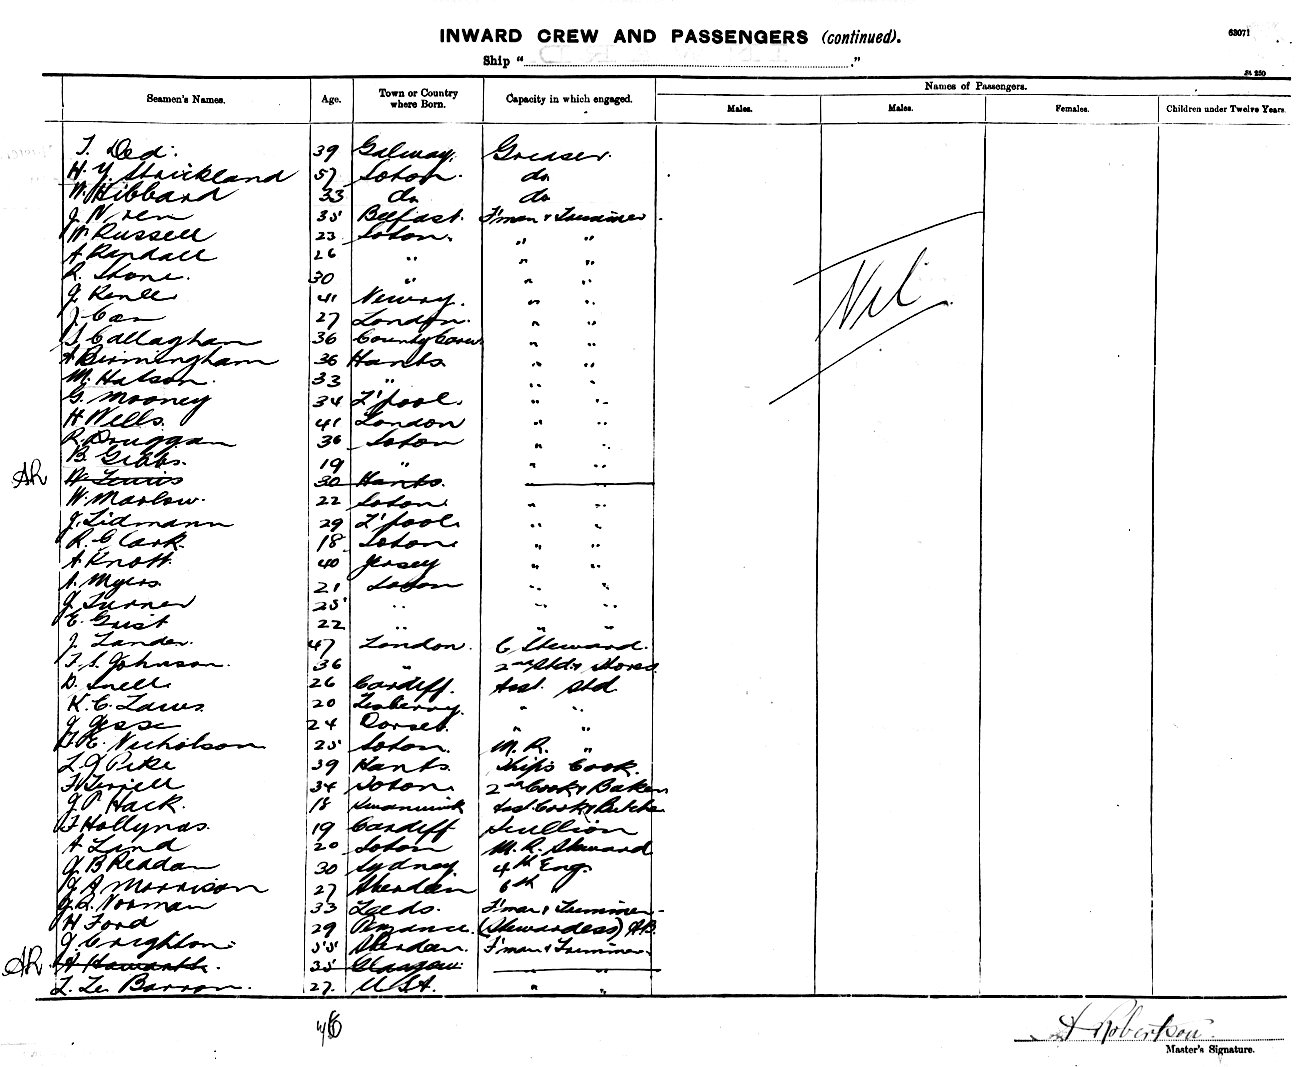 63071
INWARD CREW AND PASSENGERS (continued).
Ship " "
Seamen's Names. Age. Town or Country where Born. Capacity in which engaged. Names of Passengers.
Males. Males. Females. Children under Twelve Years.
39 Galway. Greaser.
H. Y. Strickland 57 Soton. do
W. Hibbard 33 do do
J. Wren 35 Belfast. F'man & Trimmer
W. Russell 23 Soton. " "
A Randall 26 " " "
R. Stone. 30 " " "
J. 41 Newry. " "
27 London. " "
Callaghan 36 County " "
A Birmingham 36 Hants. " "
M. Hatson. 33 " " "
G. Mooney 34 L'pool. " "
H Wells. 41 London " "
R. Druggan 36 Soton " "
B. Gibbs. 19 " " "
AR 30 Hants.
W. Marlow. 22 Soton. " "
J. Lidmann 29 L'pool. " "
R. Clark. 18 Soton. " "
A Knott. 40 Jersey " "
A. Myers. 21 Soton " "
J. Turner 25 " " "
E. Grist 22 " " "
J. Lander. 47 London. C. Steward.
T. S. Johnson. 36 " 2nd Std & Stores
D. Snell. 26 Cardiff. Asst. Std
K. C. Laws. 20 " "
J Jesse 24 Dorset. " "
E. Nicholson 25 Soton. M. R. "
L J Pike 39 Hants. Ship's Cook.
F Terrell 34 Soton. 2nd Cook & Baker
J. P. Hack. 18 Swanwick Asst. Cook & Butcher
F Hollynas. 19 Cardiff Scullion
A Lind 20 Soton M. R. Steward
J. B Reddan 30 Sydney. 4th Eng.
J A Morrison 27 Aberdeen 6th "
Norman 33 Leeds. F'man & Trimmer
H Ford 29 Penzance. (Stewardess) AB.
J. Crighton. 55 Aberdeen. F'man & Trimmer.
AR Haworth. 35 Glasgow.
L. Le Barron. 27. U.S.A. " "
Nil
A Robertson
Master's Signature.